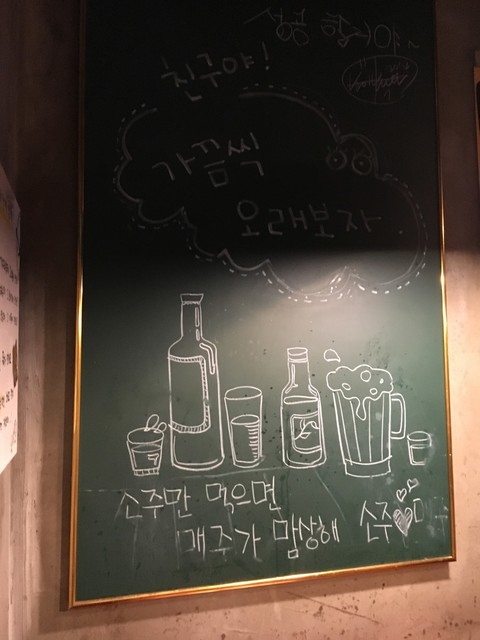 성공
친구야!
가끔씩
오래보자
소주만 먹으면
맥주가 맘상해 소주